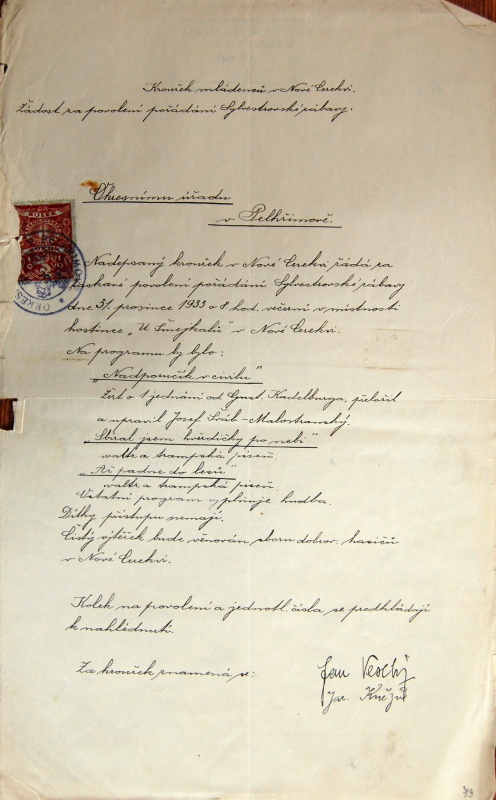 Kroužek mládenců v Nové Cerekvi.
Žádost za povolení pořádání Sylvestrovské zábavy.
Okresnímu úřadu
v Pelhřimově.
KOLEK
OKRES
Nadepsaný kroužek v Nové Cerekvi žádá za
laskavé povolení pořádání Sylvestrovské zábavy
dne 31. prosince 1933 o 8 hod. večerní v místnosti
hostince „U Šmejkalů“ v Nové Cerekvi.
Na programu by bylo:
„Nadporučík v civilu“
Žert o 1 jednání od Gust. Kadelburga, přeložil
a upravil Josef Šváb-Malostranský.
„Sbíral jsem hvězdičky po nebi“
waltz a trampská píseň.
„Až padne do lesů“
waltz a trampská píseň.
Ostatní program vyplňuje hudba.
Dítky přístupu nemají.
Čistý výtěžek bude věnován sboru dobrov. hasičů
v Nové Cerekvi.
Kolek na povolení a jednotl. čísla se předkládají
k nahlédnutí.
Za kroužek znamená se:
Jan Veselý
Jar.
73